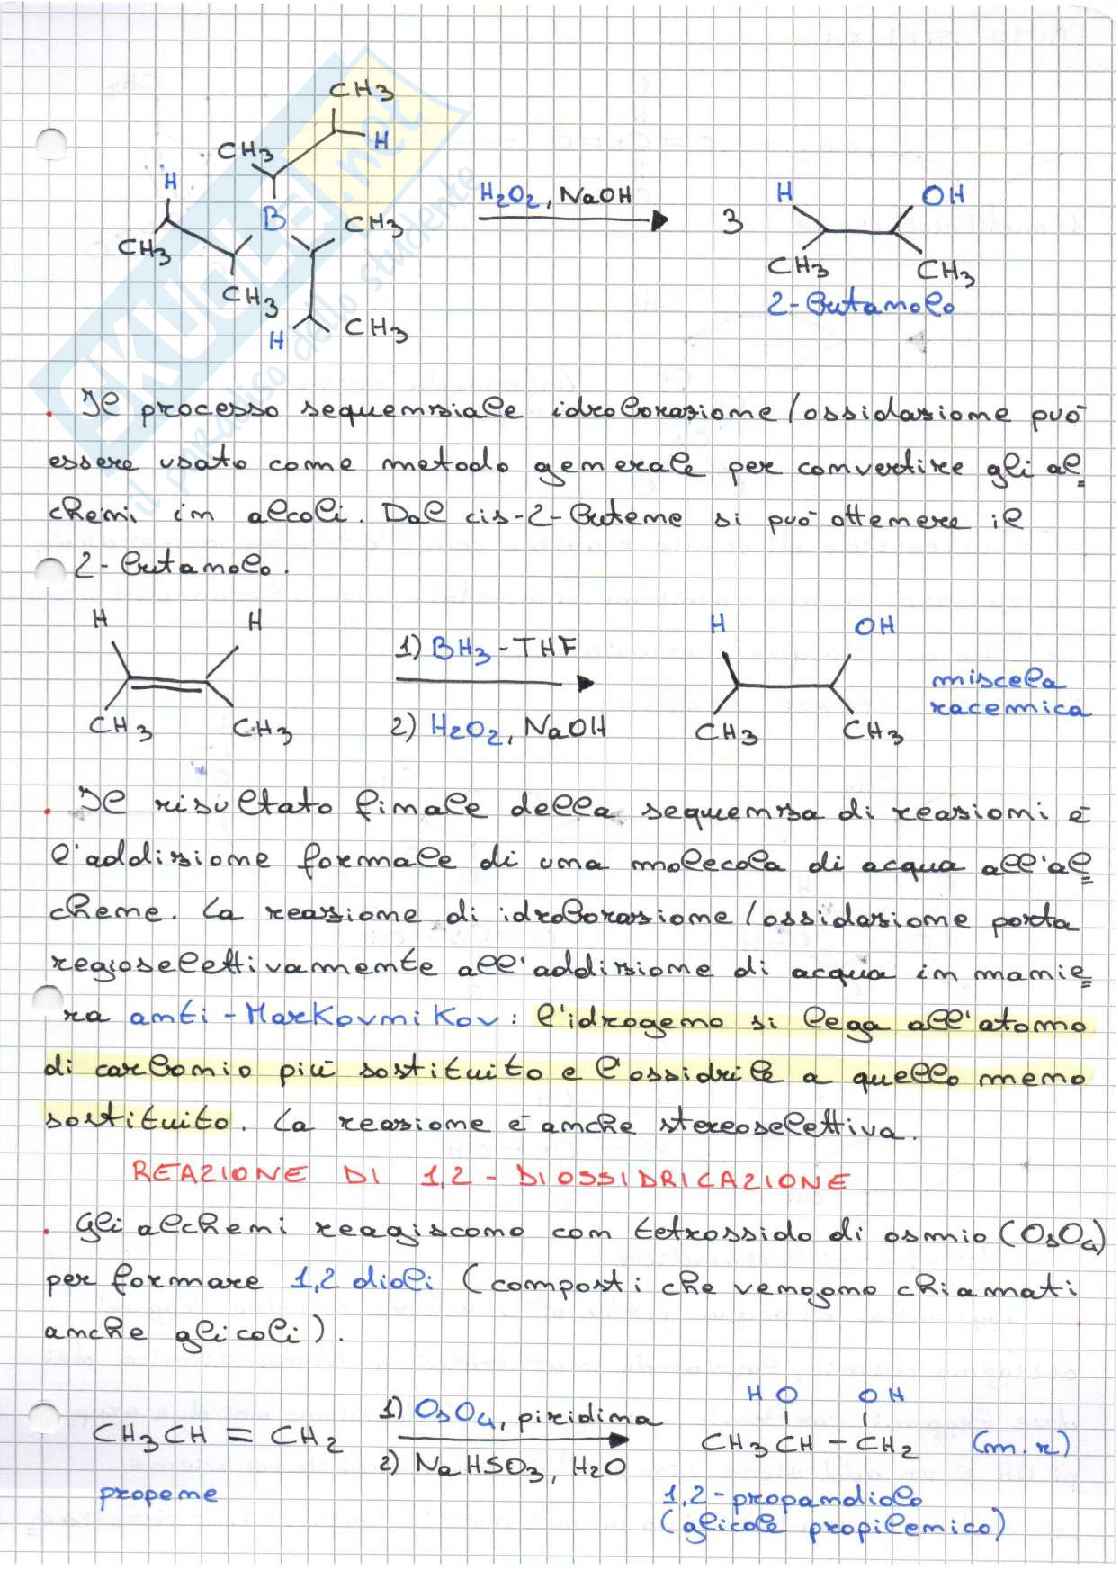 CH3
CH3
H
H
B
CH3
CH3
CH3
H
CH3
H2O2, NaOH
3
H
OH
CH3
CH3
2-butanolo
. Il processo sequenziale idroborazione/ossidazione può
essere usato come metodo generale per convertire gli al
cheni in alcoli. Dal cis-2-butene si può ottenere il
2-butanolo.
H
H
CH3
CH3
1) BH3-THF
2) H2O2, NaOH
H
OH
CH3
CH3
miscela
racemica
. Il risultato finale della sequenza di reazioni è
l'addizione formale di una molecola di acqua all'al
chene. La reazione di idroborazione/ossidazione porta
regioselettivamente all'addizione di acqua in manie
ra anti-Markovnikov: l'idrogeno si lega all'atomo
di carbonio più sostituito e l'ossidrile a quello meno
sostituito. La reazione è anche stereoselettiva.
REAZIONE DI 1,2-DIOSSIDRICAZIONE
. Gli alcheni reagiscono con tetrossido di osmio (OsO4)
per formare 1,2 dioli (composti che vengono chiamati
anche glicoli).
CH3CH = CH2
propene
1) OsO4, piridina
2) NaHSO3, H2O
HO
OH
CH3CH - CH2
(m.r)
1,2-propandiolo
(glicole propilenico)